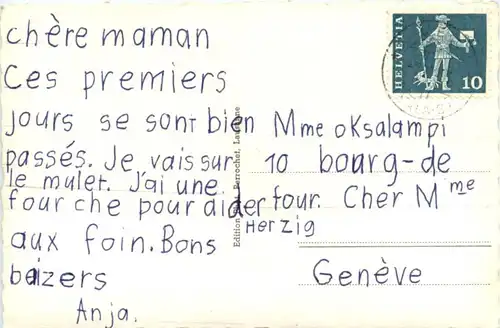 chère maman
Ces premiers
jours se sont bien
passés. Je vais sur
le mulet. J'ai une
fourche pour aider
aux foin. Bons
baizers
Anja.
HELVETIA
10
Mme oksalampi
10 bourg-de
four. Cher Mme
Herzig
Genève